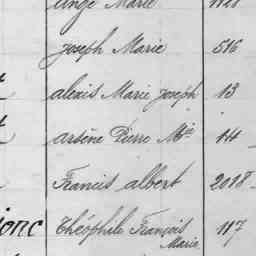 ange Marie 1128
Joseph Marie 516
alexis Marie Joseph 13
arsène Pierre Mie 14
Francis albert 2018
jonc Théophile François 117
Marie